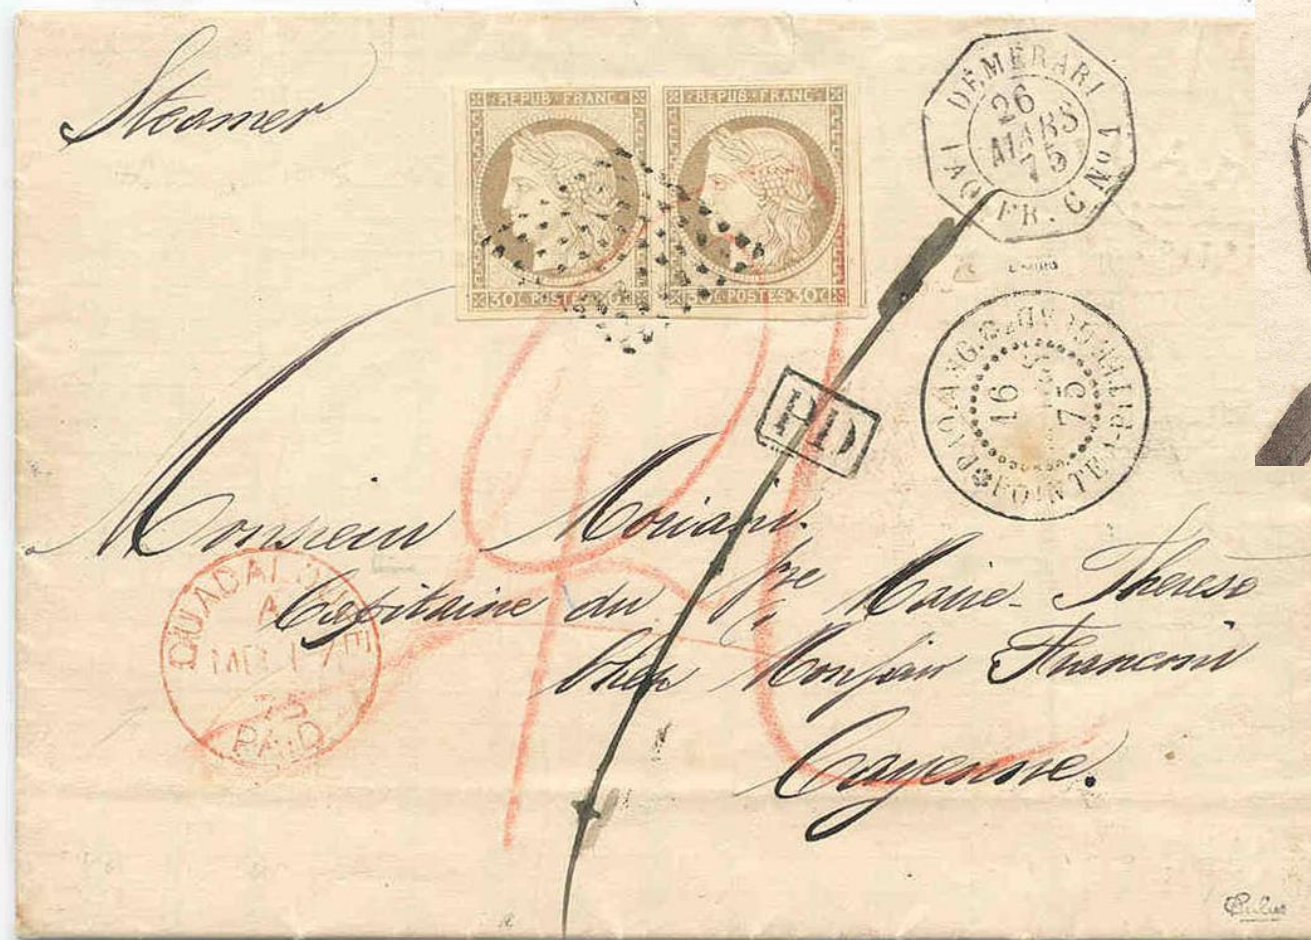 Steamer
REPUB · FRANC ·
30C · POSTES
REPUB · FRANC ·
30C · POSTES · 30C
DÉMÉRARI
26
MARS
75
PAQ. FR. C Nº 1
POINTE-A-PITRE
16
75
PD
Monsieur Moriani.
Capitaine du Marie-Therese
Chez Monsieur Franconi
Cayenne.
GUADALOUPE
A
75
PAID